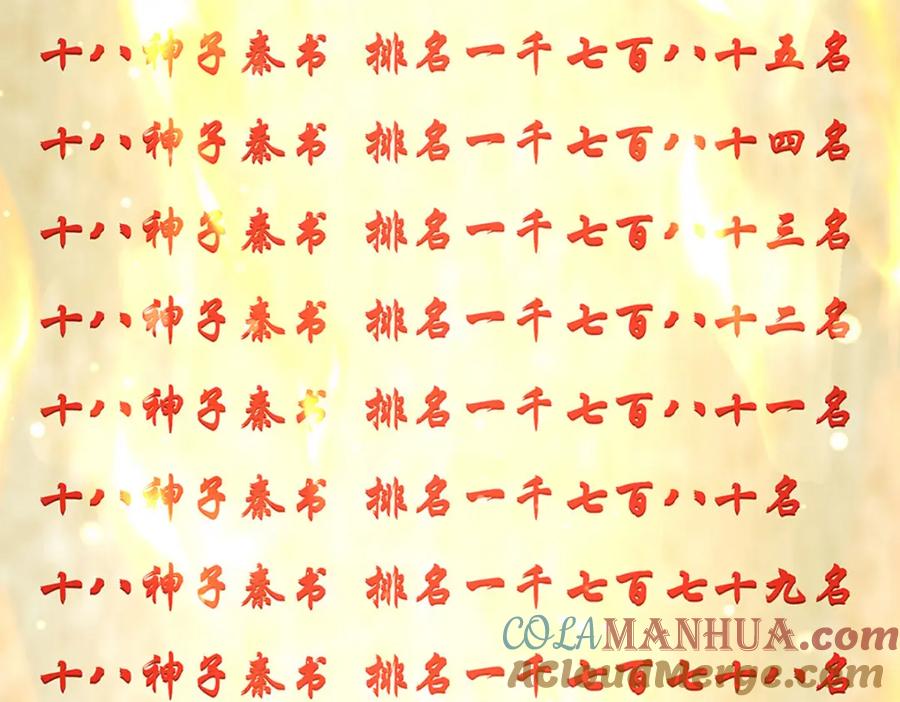 十八神子秦书 排名一千七百八十五名
十八神子秦书 排名一千七百八十四名
十八神子秦书 排名一千七百八十三名
十八神子秦书 排名一千七百八十二名
十八神子秦书 排名一千七百八十一名
十八神子秦书 排名一千七百八十名
十八神子秦书 排名一千七百七十九名
COLAMANHUA.com
十八神子秦书 排名一千七百七十八名
ACloudMerge.com